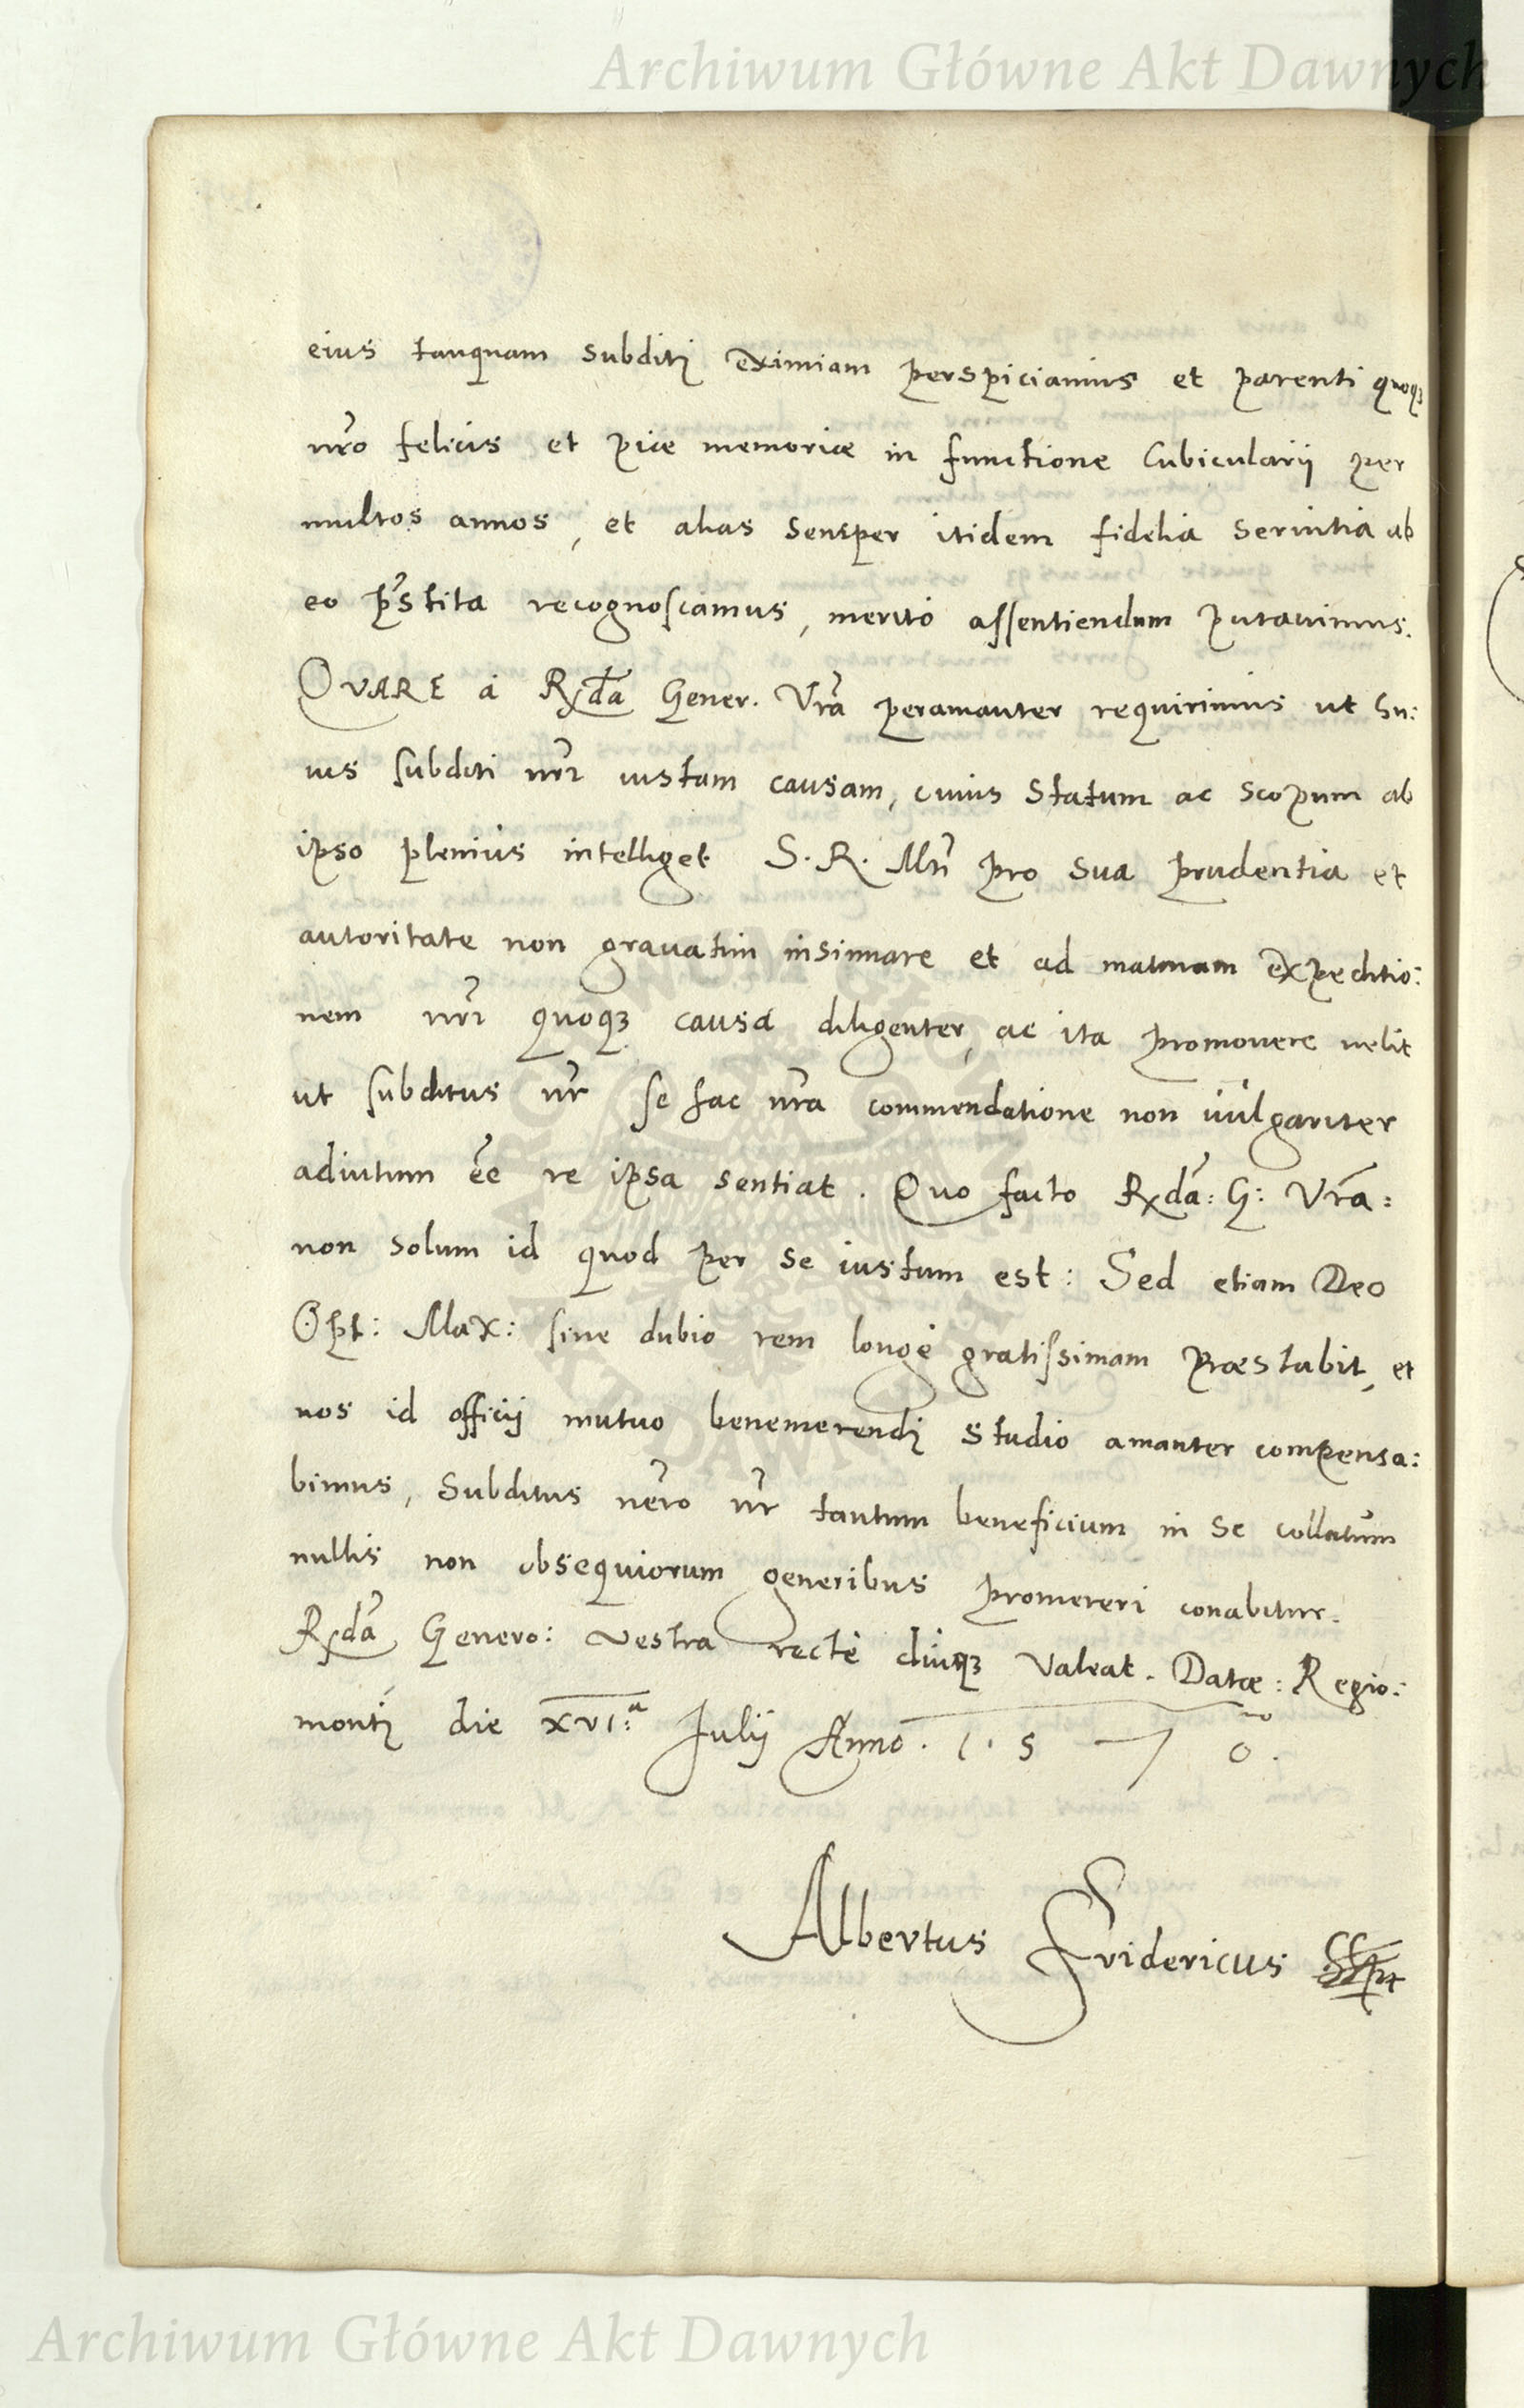 Archiwum Główne Akt Dawnych
eius tanquam subditi eximiam perspiciamus et parenti quoqꝫ
nr̃o felicis et piæ memoriæ in functione Cubicularii per
multos annos, et alias semper itidem fidelia seruitia ab
eo p̃stita recognoscamus, meritò assentiendum putauimus.
QVARE à Rx̃da Gener. Vr̃a peramanter requirimus ut hu:
ius subditi nr̃i iustam causam, cuius statum ac scopum ab
ipso plenius intelliget S. R. Mt̃i pro sua prudentia et
autoritate non grauatim insinuare et ad maturam expeditio:
nem nr̃i quoqꝫ causa diligenter, ac ita promouere uelit
ut subditus nr̃ se hac nr̃a commendatione non uulgariter
adiutum ẽe re ipsa sentiat. Quo facto Rx̃da: G: Vr̃a:
non solum id quod per se iustum est: Sed etiam Deo
Opt: Max: sine dubio rem longè gratissimam præstabit, et
nos id officij mutuo benemerendi studio amanter compensa:
bimus, Subditus uero nr̃ tantum beneficium in se collatum
nullis non obsequiorum generibus promereri conabitur.
Rx̃da Genero: Vestra rectè diuqꝫ Valeat. Datæ: Regio:
monti die XVI:ª Julij Anno. 1. 5 7 0.
Albertus Fridericus
ARCHIWUM GŁÓWNE
AKT DAWNYCH
Archiwum Główne Akt Dawnych